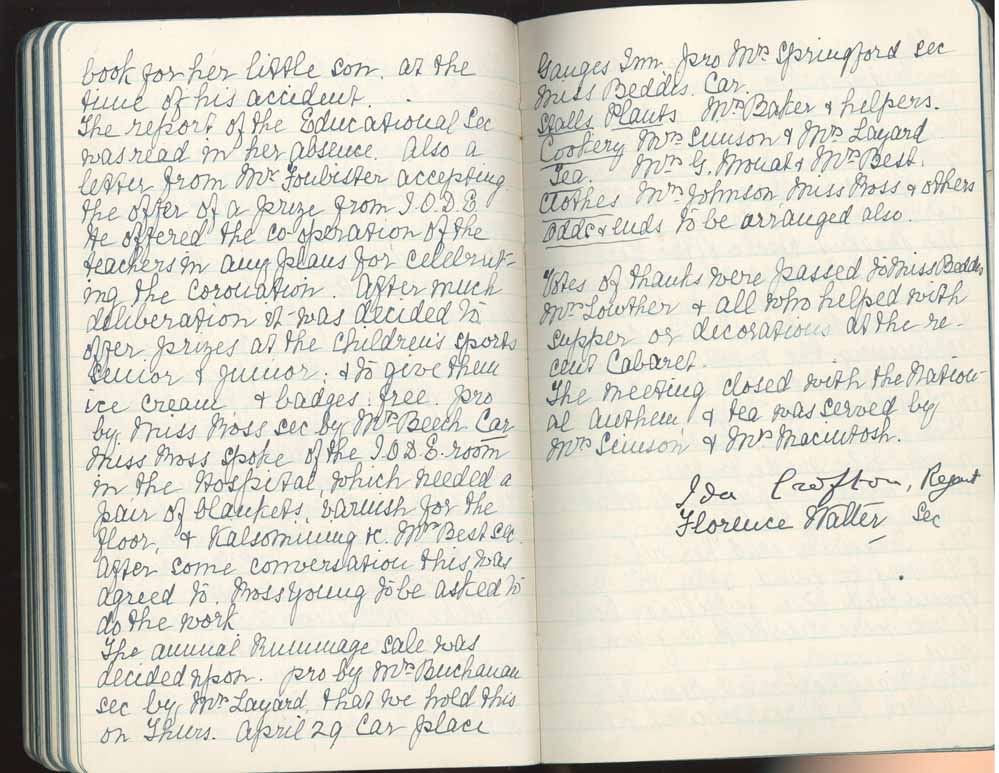 book for her little son. at the
time of his accident.
The report of the Educational Sec
was read in her absence. Also a
letter from Mr Foubister accepting
the offer of a prize from I.O.D.E
He offered the co-operation of the
teachers in any plans for celebrat-
ing the coronation. After much
deliberation it was decided to
offer prizes at the children's sports
Senior & junior. & to give them
ice cream & badges. free. pro
by Miss Moss sec by Mrs Beech Car
Miss Moss spoke of the I.O.D.E. room
in the Hospital, which needed a
pair of blankets, varnish for the
floor, & Kalsomining &c. Mrs Best sec.
After some conversation this was
agreed to. Moss Young to be asked to
do the work
The annual Rummage sale was
decided upon. pro by Mrs Buchanan
sec by Mrs Layard, that we hold this
on Thurs. April 29 Car place
Ganges Inn. pro Mrs Springford sec
Miss Beddis. Car.
Stalls Plants Mrs Baker & helpers.
Cookery Mrs Simson & Mrs Layard
Tea. Mrs G. Mouat & Mrs Best.
Clothes Mrs Johnson, Miss Moss & others
odds & ends to be arranged also.
Votes of thanks were passed to Miss Beddis
Mrs Lowther & all who helped with
supper or decorations at the re-
cent Cabaret.
The meeting closed with the Nation-
al Anthem, & tea was served by
Mrs Simson & Mrs Macintosh.
Ida Crofton, Regent
Florence Walter Sec